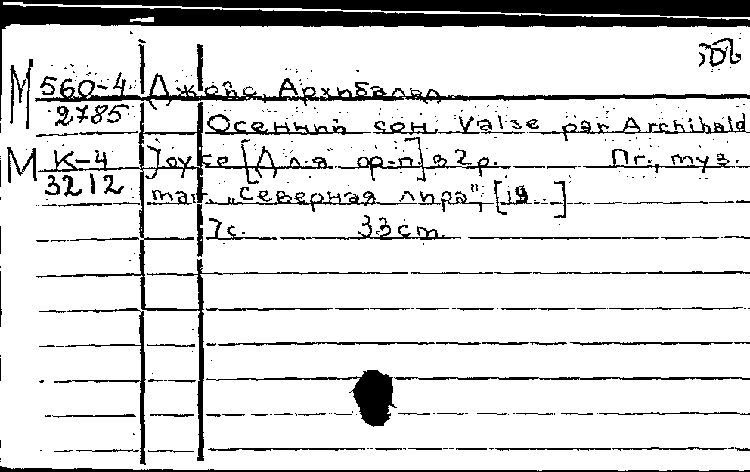 М 560-4 Джойс, Арчибальд
2785 Осенний сон. Valse par Archibald
М К-4 Joyce [Для ф-п] в 2 р. Пг., муз.
3212 маг. „Северная лира", [19...]
7 с. 33 см.